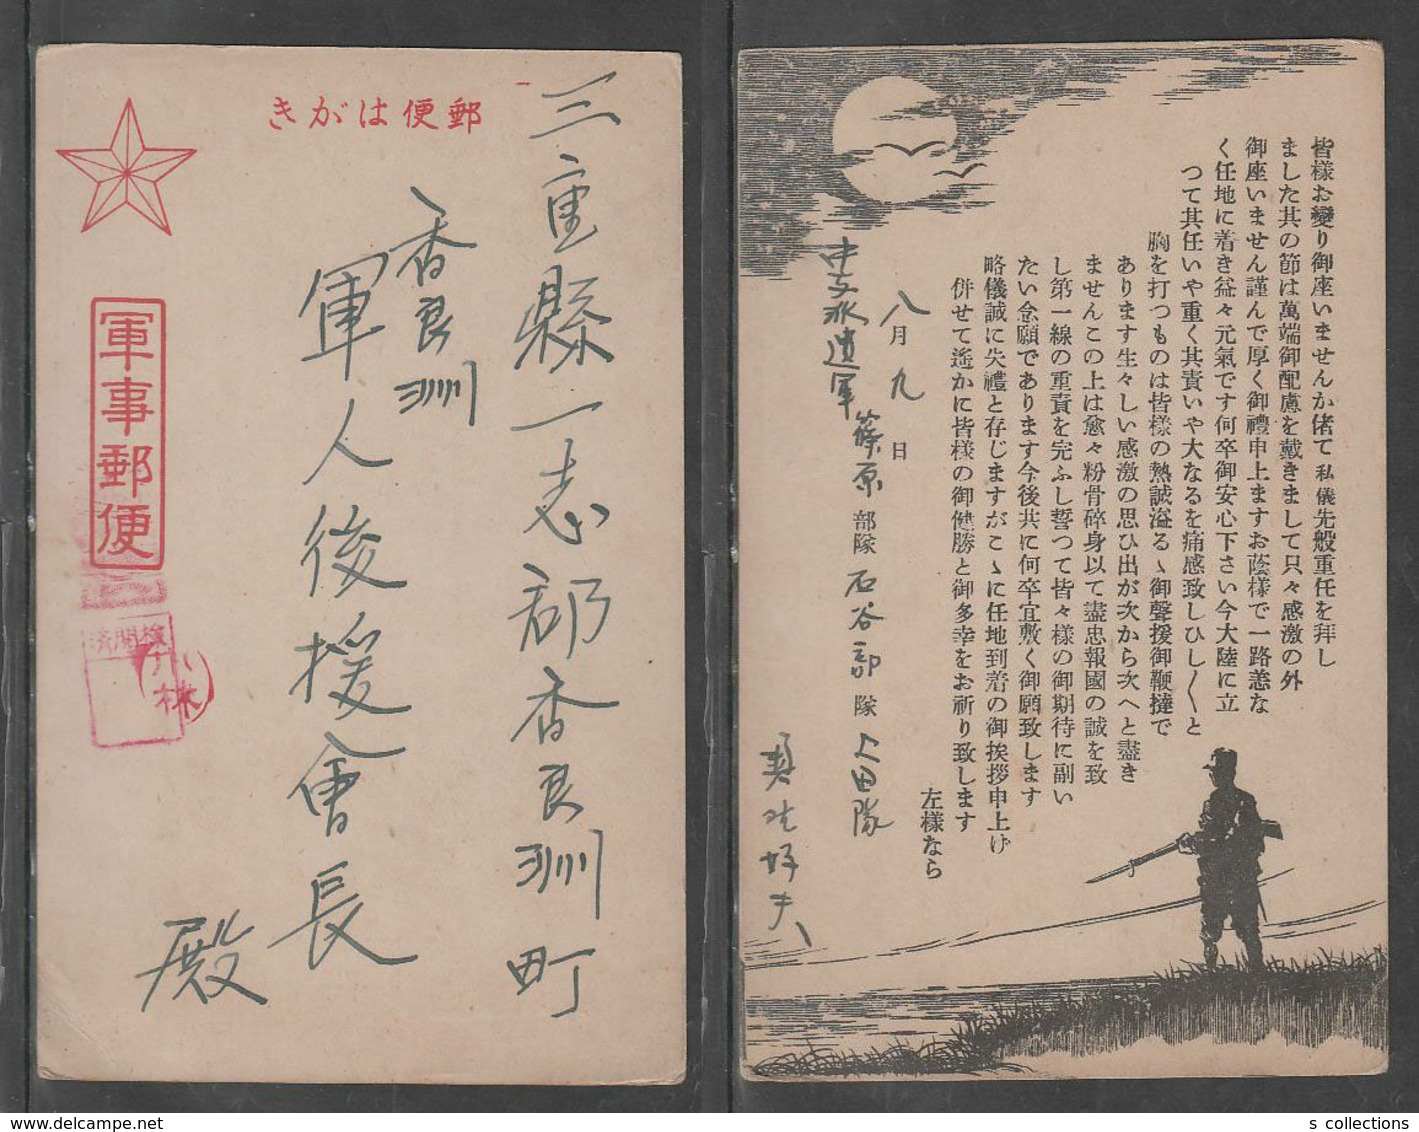 郵便はがき
軍事郵便
検閲済
小林
三重縣一志郡香良洲町
香良洲
軍人後援會長
殿
皆様お變り御座いませんか偖て私儀先般重任を拝し
ました其の節は萬端御配慮を戴きまして只々感激の外
御座いません謹んで厚く御禮申上ますお蔭様で一路恙な
く任地に着き益々元氣です何卒御安心下さい今大陸に立
つて其任いや重く其責いや大なるを痛感致しひし〱と
胸を打つものは皆様の熱誠溢るゝ御聲援御鞭撻で
あります生々しい感激の思ひ出が次から次へと盡き
ませんこの上は愈々粉骨碎身以て盡忠報國の誠を致
し第一線の重責を完ふし誓つて皆々様の御期待に副い
たい念願であります今後共に何卒宜敷く御願致します
略儀誠に失禮と存じますがこゝに任地到着の御挨拶申上げ
併せて遙かに皆様の御健勝と御多幸をお祈り致します
左様なら
八月九日
中支派遣軍
篠原部隊石谷部隊上田隊
s collections